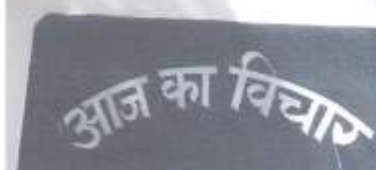 आज का विचार